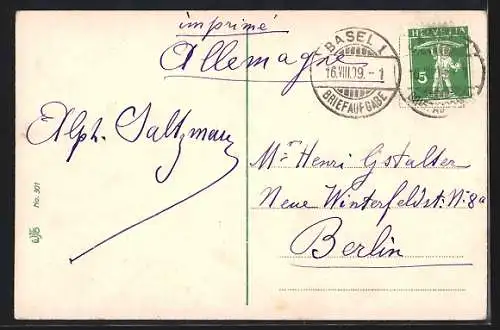 imprimé
Allemagne
BASEL 1
16.VIII.09.-1
BRIEFAUFGABE
HELVETIA
5
Alph. Saltzmann
Mr Henri Gstalter
Neue Winterfeldst. N. 8a
Berlin
No. 301